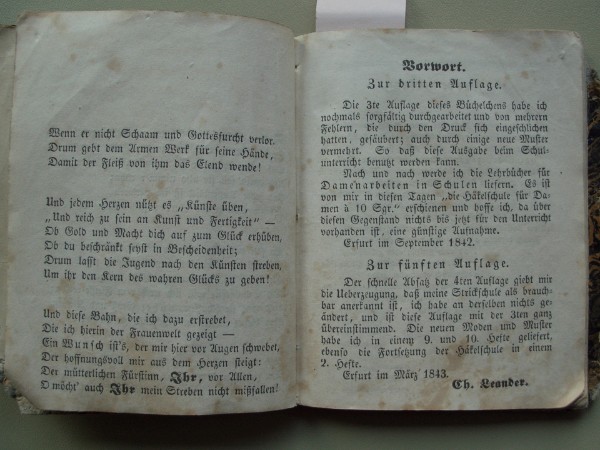 Wenn er nicht Schaam und Gottesfurcht verlor.
Drum gebt dem Armen Werk für seine Hände,
Damit der Fleiß von ihm das Elend wende!
Und jedem Herzen nützt es „Künste üben,
„Und reich zu sein an Kunst und Fertigkeit" —
Ob Gold und Macht dich auf zum Glück erhüben,
Ob du beschränkt seyst in Bescheidenheit;
Drum lasst die Jugend nach den Künsten streben,
Um ihr den Kern des wahren Glücks zu geben!
Und diese Bahn, die ich dazu erstrebet,
Die ich hierin der Frauenwelt gezeigt —
Ein Wunsch ist's, der mir hier vor Augen schwebet,
Der hoffnungsvoll mir aus dem Herzen steigt:
Der mütterlichen Fürstinn, Ihr, vor Allen,
O möcht' auch Ihr mein Streben nicht mißfallen!
Vorwort.
Zur dritten Auflage.
Die 3te Auflage dieses Büchelchens habe ich
nochmals sorgfältig durchgearbeitet und von mehrern
Fehlern, die durch den Druck sich eingeschlichen
hatten, gesäubert; auch durch einige neue Muster
vermehrt. So daß diese Ausgabe beim Schul-
unterricht benutzt werden kann.
Nach und nach werde ich die Lehrbücher für
Damenarbeiten in Schulen liefern. Es ist
von mir in diesen Tagen „die Häkelschule für Da-
men à 10 Sgr." erschienen und hoffe ich, da über
diesen Gegenstand nichts bis jetzt für den Unterricht
vorhanden ist, eine günstige Aufnahme.
Erfurt im September 1842.
Zur fünften Auflage.
Der schnelle Absatz der 4ten Auflage giebt mir
die Ueberzeugung, daß meine Strickschule als brauch-
bar anerkannt ist, ich habe an derselben nichts ge-
ändert, und ist diese Auflage mit der 3ten ganz
übereinstimmend. Die neuen Moden und Muster
habe ich in einem 9. und 10. Hefte geliefert,
ebenso die Fortsetzung der Häkelschule in einem
2. Hefte.
Erfurt im März 1843.
Ch. Leander.